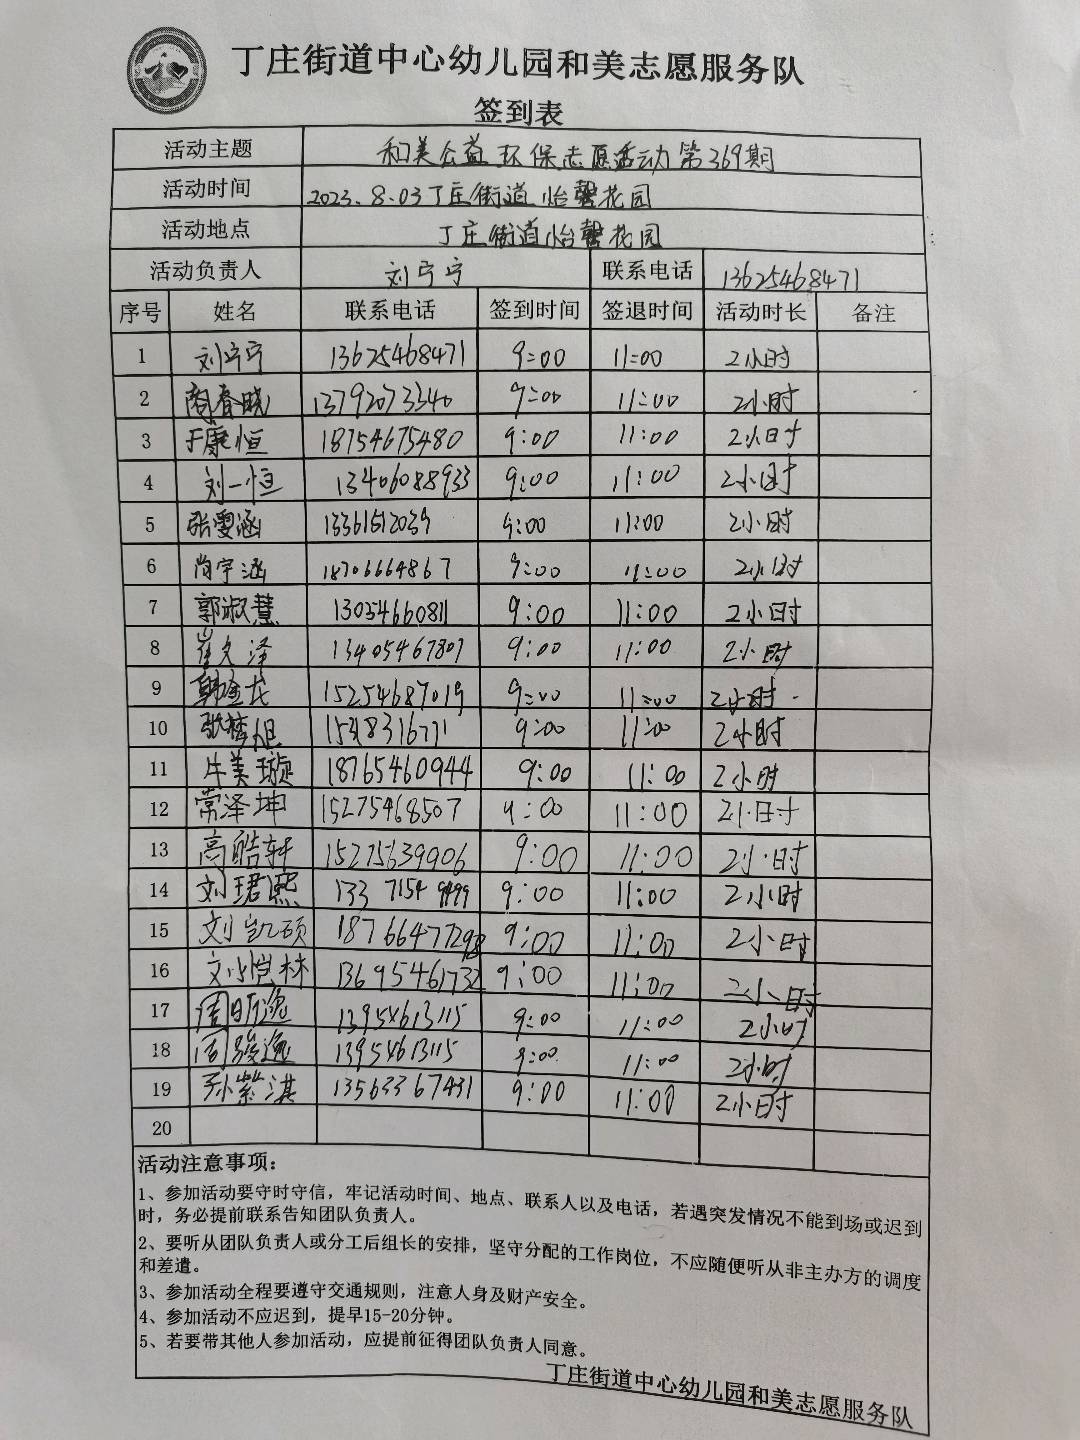 丁庄街道中心幼儿园和美志愿服务队
签到表
活动主题 和美公益环保志愿活动第369期
活动时间 2023.8.03丁庄街道怡馨花园
活动地点 丁庄街道怡馨花园
活动负责人 刘宁宁 联系电话 13625468471
序号 姓名 联系电话 签到时间 签退时间 活动时长 备注
1 刘宁宁 13625468471 9:00 11:00 2小时
2 商春晓 13792073340 9:00 11:00 2小时
3 于康恒 18754675480 9:00 11:00 2小时
4 刘一恒 13406088933 9:00 11:00 2小时
5 张雯涵 13361512039 9:00 11:00 2小时
6 尚宇涵 18706664867 9:00 11:00 2小时
7 郭淑慧 13054660811 9:00 11:00 2小时
8 崔久泽 13405467807 9:00 11:00 2小时
9 韩金龙 15254687019 9:00 11:00 2小时
10 9:00 11:00 2小时
11 牛美璇 18765460944 9:00 11:00 2小时
12 常泽坤 15275468507 9:00 11:00 2小时
13 高皓轩 15275639906 9:00 11:00 2小时
14 刘珺熙 9:00 11:00 2小时
15 刘凯硕 9:00 11:00 2小时
16 刘恺林 13695461732 9:00 11:00 2小时
17 周昕逸 13954613115 9:00 11:00 2小时
18 周骏逸 13954613115 9:00 11:00 2小时
19 孙紫淇 13563367431 9:00 11:00 2小时
20
活动注意事项：
1、参加活动要守时守信，牢记活动时间、地点、联系人以及电话，若遇突发情况不能到场或迟到
时，务必提前联系告知团队负责人。
2、要听从团队负责人或分工后组长的安排，坚守分配的工作岗位，不应随便听从非主办方的调度
和差遣。
3、参加活动全程要遵守交通规则，注意人身及财产安全。
4、参加活动不应迟到，提早15-20分钟。
5、若要带其他人参加活动，应提前征得团队负责人同意。
丁庄街道中心幼儿园和美志愿服务队